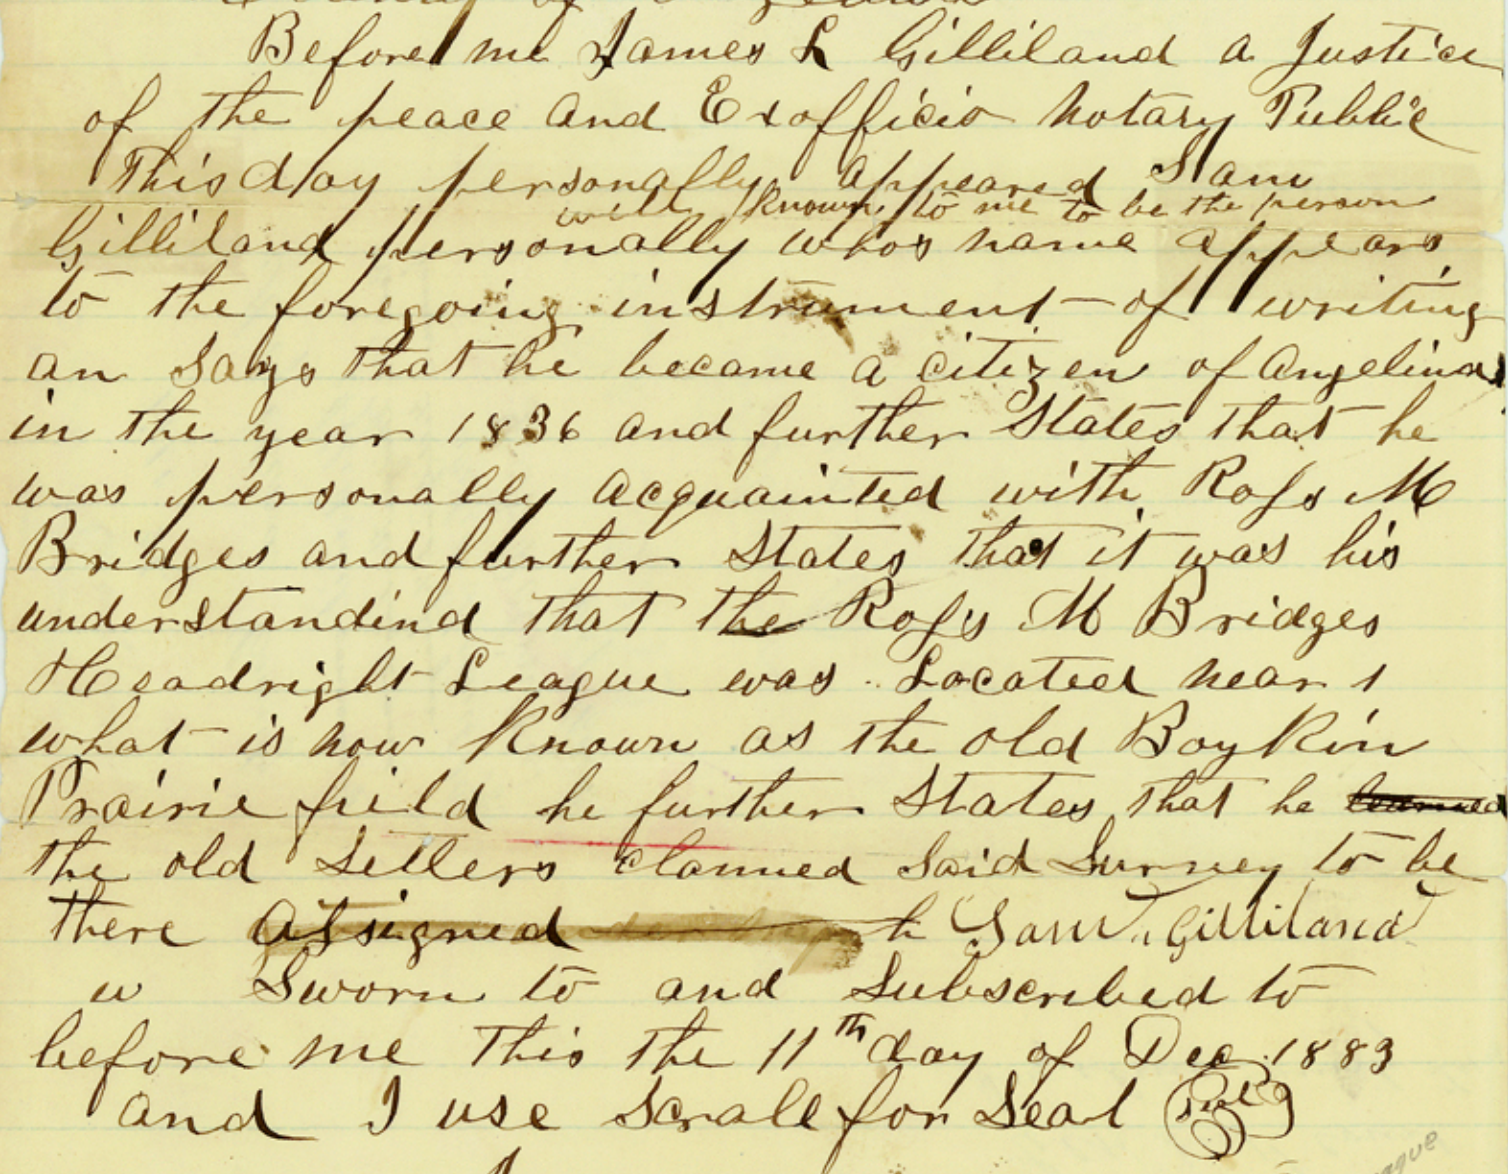 Before me James L Gilliland a Justice
of the peace and Exofficio Notary Public
This day personally appeared Sam
well known to me to be the person
Gilliland personally whos name appears
to the foregoing instrument of writing
an Says that he became a citizen of Angelina
in the year 1836 and further States that he
was personally acquainted with Ross M
Bridges and further States that it was his
understandind that the Ross M Bridges
Headright League was Located near
what is now Known as the old Boykin
Prairie field he further States that he
the old Setlers clamed Said Survey to be
there assigned Sam Gilliland
Sworn to and Subscribed to
before me this the 11th day of Dec 1883
and I use Scrall for Seal